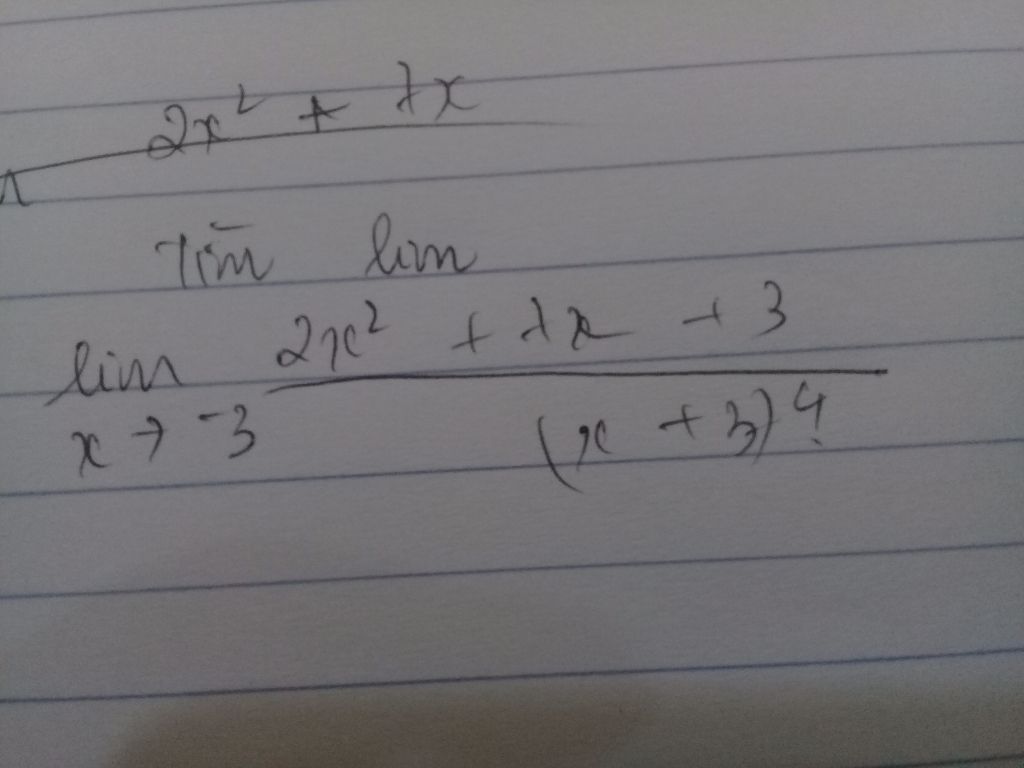 2x² + 7x
Tìm lim
lim 2x² + 7x + 3
x → -3 (x + 3)⁴